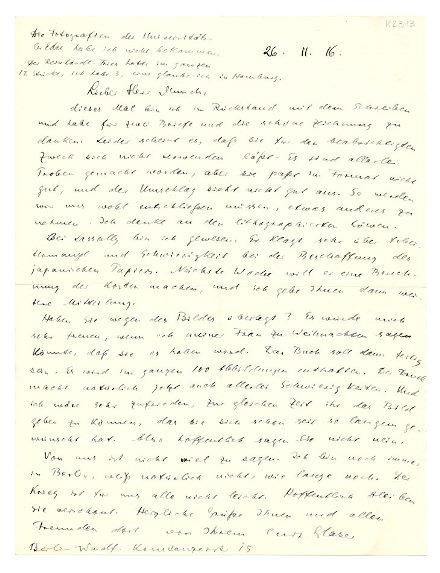 K 2313
Die Fotografien der Universitäts-
bilder habe ich nicht bekommen.
der Reinhardt Fries hatte im ganzen
12 Stücke, ich habe 3, eins glaube ich in Hamburg.
26. 11. 16.
Lieber Herr Munch,
dieses Mal bin ich im Rückstand mit dem Schreiben
und habe für zwei Briefe und die schöne Zeichnung zu
danken. Leider scheint es, daß sie für den beabsichtigten
Zweck sich nicht verwenden läßt. Es sind allerlei
Proben gemacht worden, aber sie paßt im Format nicht
gut, und der Umschlag sieht nicht gut aus. So werden
wir uns wohl entschließen müssen, etwas anderes zu
nehmen. Ich denke an den lithographierten Löwen.
Bei Cassirer bin ich gewesen. Er klagt sehr über
und Schwierigkeit bei der Beschaffung des
japanischen Papiers. Nächste Woche will er eine Berech-
nung der Kosten machen, und ich gebe Ihnen dann wei-
tere Mitteilung.
Haben Sie wegen des Bildes überlegt? Es würde mich
sehr freuen, wenn ich meiner Frau zu Weihnachten sagen
könnte, daß sie es haben wird. Das Buch soll dann fertig
sein. Es wird im ganzen 100 Abbildungen enthalten. Der Druck
macht natürlich jetzt auch allerlei Schwierigkeiten. Und
ich wäre sehr zufrieden, zur gleichen Zeit ihr das Bild
geben zu können, das sie sich schon seit so langem ge-
wünscht hat. Also hoffentlich sagen Sie nicht nein.
Von uns ist nicht viel zu sagen. Ich bin noch immer
in Berlin, weiß natürlich nicht, wie lange noch. Der
Krieg ist für uns alle nicht leicht. Hoffentlich bleiben
Sie verschont. Herzliche Grüße Ihnen und allen
Freunden dort von Ihrem Curt Glaser
Berlin Wmdf.